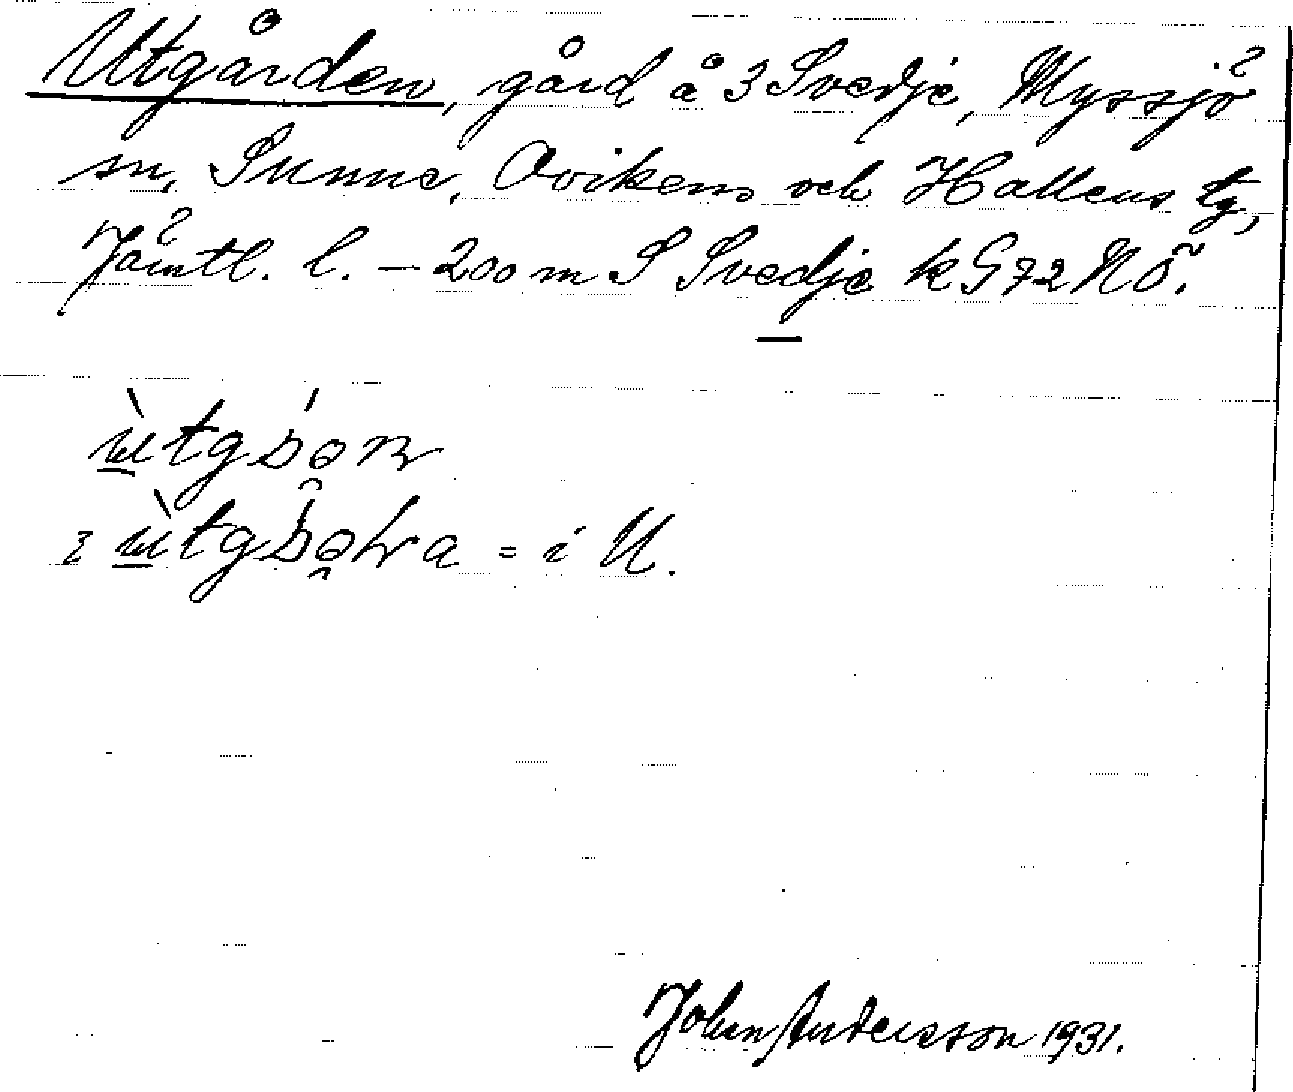 Utgården, gård å 3 Svedje, Myssjö
sn, Sunne, Ovikens och Hallens tg,
Jämtl. l. – 200 m S Svedje k G72 NÖ.
= i U.
John Andersson 1931.